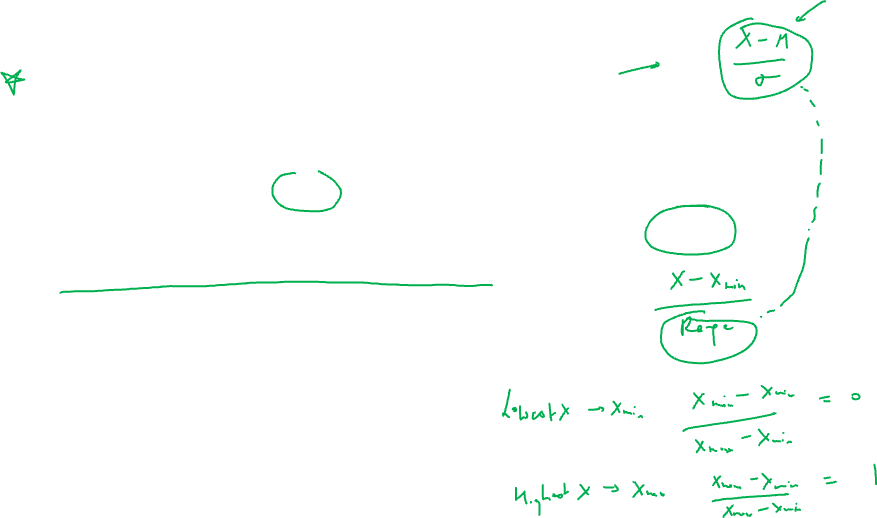 X - M
σ
X - X min
Range
Lowest X → X min X min - X min = 0
X max - X min
Highest X → X max X max - X min = 1
X max - X min